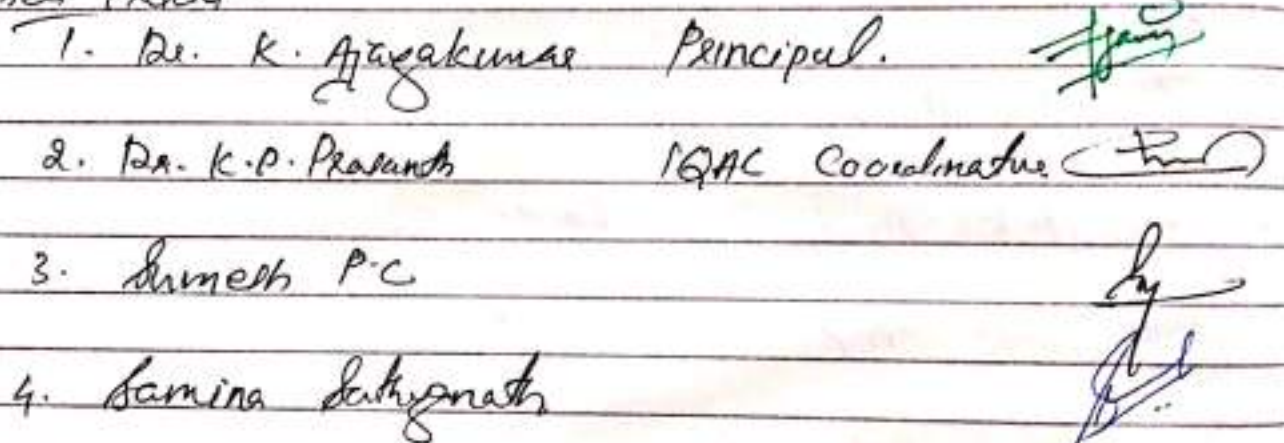 1. Dr. K. Ajayakumar Principal.
2. Dr. K.P. Prasanth IQAC Coordinator
3. Sumesh P.C
4. Samina Sathyanath